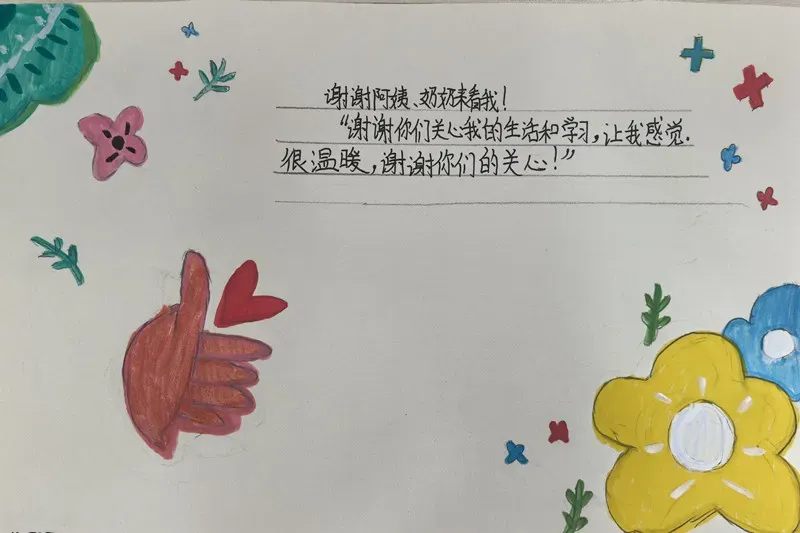 谢谢阿姨、奶奶来看我!
“谢谢你们关心我的生活和学习,让我感觉.
很温暖,谢谢你们的关心!”